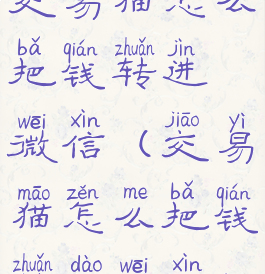 交易猫怎么
bǎ qián zhuǎn jìn
把钱转进
wēi xìn jiāo yì
微信（交易
māo zěn me bǎ qián
猫怎么把钱
zhuǎn dào wēi xìn